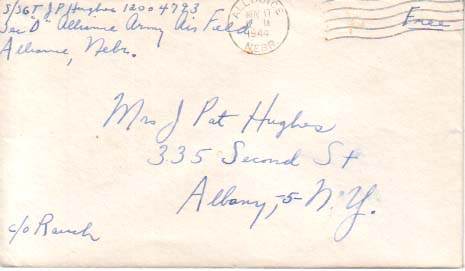 S/SGT J P Hughes 12004793
Sec "D" Alliance Army Air Field
Alliance, Nebr.
ALLIANCE
1944
NEBR
Free
Mrs J Pat Hughes
335 Second St
Albany, -5- N.Y.
c/o Rauch